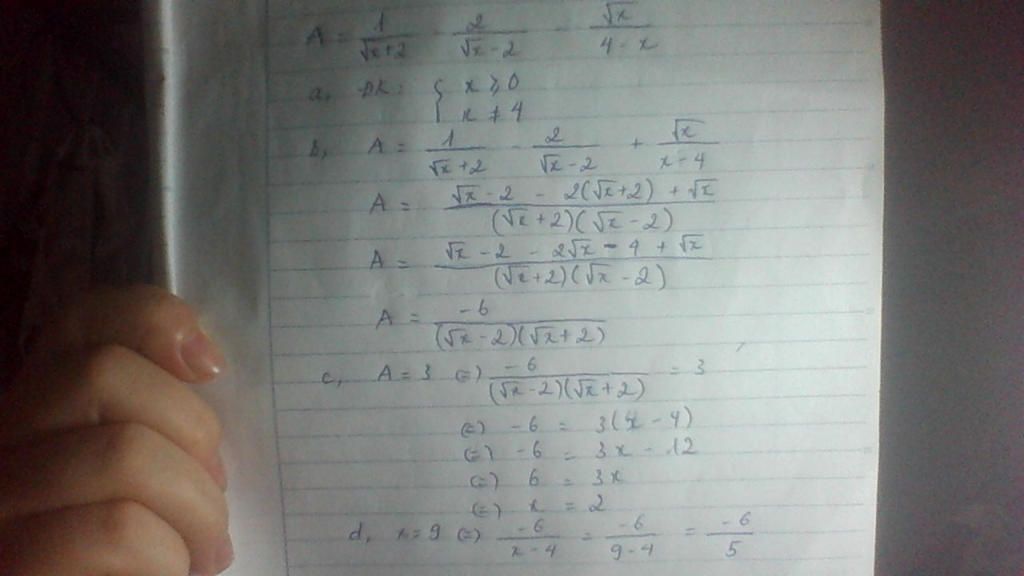 A = 1/(√x+2) - 2/(√x-2) - √x/(4-x)
a, ĐK: { x ≥ 0
x ≠ 4
b, A = 1/(√x+2) - 2/(√x-2) + √x/(x-4)
A = (√x-2 - 2(√x+2) + √x)/((√x+2)(√x-2))
A = (√x-2 - 2√x - 4 + √x)/((√x+2)(√x-2))
A = -6/((√x-2)(√x+2))
c, A = 3 (=) -6/((√x-2)(√x+2)) = 3
(=) -6 = 3(x-4)
(=) -6 = 3x - 12
(=) 6 = 3x
(=) x = 2
d, x = 9 (=) -6/(x-4) = -6/(9-4) = -6/5